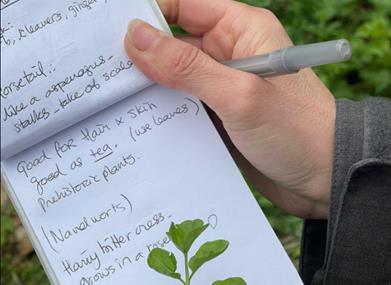 cleavers, ginger,
like a asparagus -
stalks - take of scales
Good for Hair & skin
good as tea. (use leaves)
Prehistoric plants.
(Navelworts)
Hairy bitter cress -
grows in a